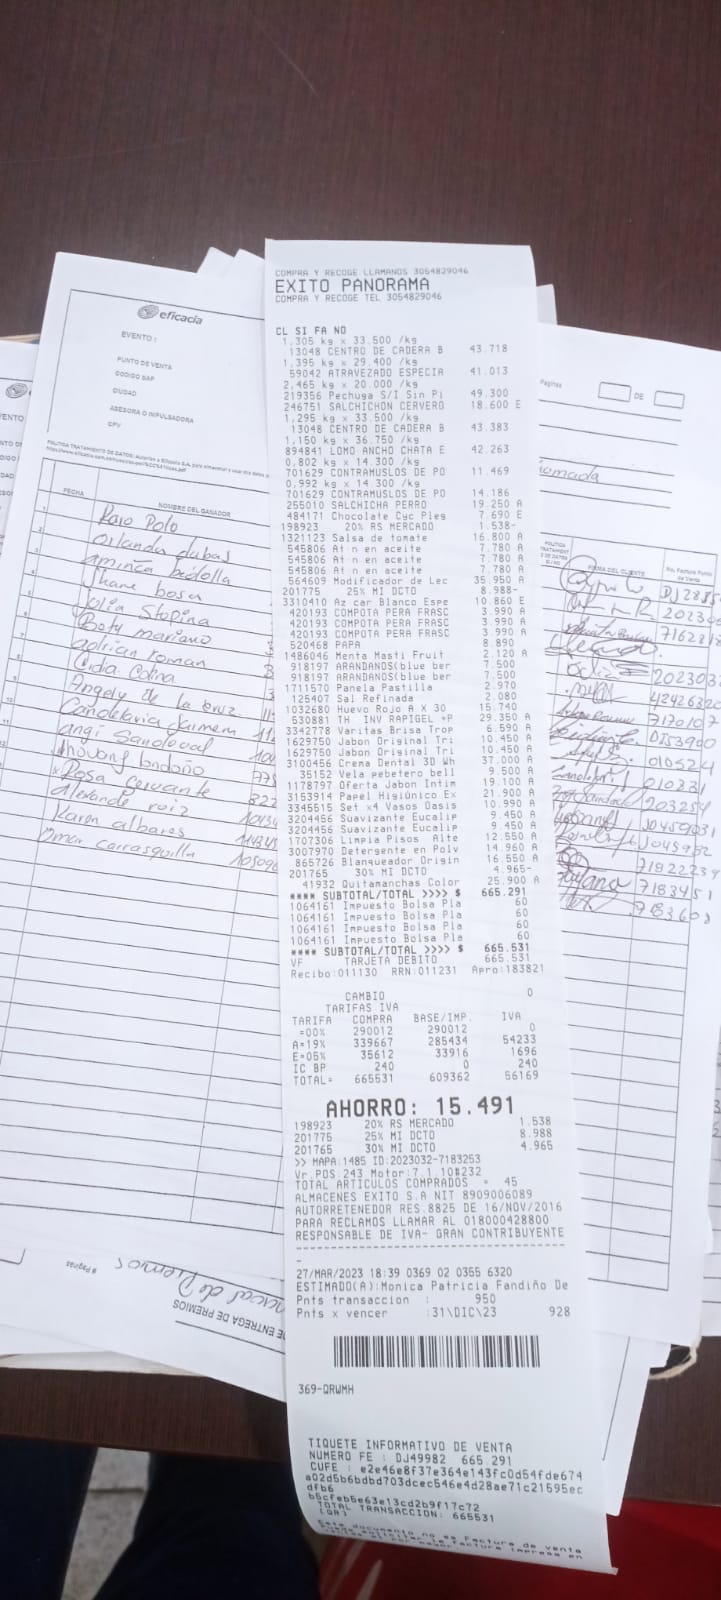 COMPRA Y RECOGE LLAMANOS 3054829046
EXITO PANORAMA
COMPRA Y RECOGE TEL 3054829046
CL SI FA NO
1,305 kg x 33.500 /kg
13048 CENTRO DE CADERA B 43.718
1,395 kg x 29.400 /kg
59042 ATRAVEZADO ESPECIA 41.013
2,465 kg x 20.000 /kg
219356 Pechuga S/I Sin Pi 49.300
246751 SALCHICHON CERVERO 18.600 E
1,295 kg x 33.500 /kg
13048 CENTRO DE CADERA B 43.383
1,150 kg x 36.750 /kg
894841 LOMO ANCHO CHATA E 42.263
0,802 kg x 14.300 /kg
701629 CONTRAMUSLOS DE PO 11.469
0,992 kg x 14.300 /kg
701629 CONTRAMUSLOS DE PO 14.186
255010 SALCHICHA PERRO 19.250 A
484171 Chocolate Cyc Ples 7.690 E
198923 20% RS MERCADO 1.538-
1321123 Salsa de tomate 16.800 A
545806 At n en aceite 7.780 A
545806 At n en aceite 7.780 A
545806 At n en aceite 7.780 A
564609 Modificador de Lec 35.950 A
201775 25% MI DCTO 8.988-
3310410 Az car Blanco Espe 10.860 E
420193 COMPOTA PERA FRASC 3.990 A
420193 COMPOTA PERA FRASC 3.990 A
420193 COMPOTA PERA FRASC 3.990 A
520468 PAPA 8.890
1486046 Menta Masti Fruit 2.120 A
918197 ARANDANOS(blue ber 7.500
918197 ARANDANOS(blue ber 7.500
1711570 Panela Pastilla 2.970
125407 Sal Refinada 2.080
1032680 Huevo Rojo A X 30 15.740
530881 TH INV RAPIGEL +P 29.350 A
3342778 Varitas Brisa Trop 6.590 A
1629750 Jabon Original Tri 10.450 A
1629750 Jabon Original Tri 10.450 A
3100456 Crema Dental 3D Wh 37.000 A
35152 Vela pebetero bell 9.500 A
1178797 Oferta Jabon Intim 19.100 A
3153914 Papel Higiúnico Ex 21.900 A
3345515 Set x4 Vasos Oasis 10.990 A
3204456 Suavizante Eucalip 9.450 A
3204456 Suavizante Eucalip 9.450 A
1707306 Limpia Pisos Alte 12.550 A
3007970 Detergente en Polv 14.960 A
865726 Blanqueador Origin 16.550 A
201765 30% MI DCTO 4.965-
41932 Quitamanchas Color 25.900 A
**** SUBTOTAL/TOTAL >>>> $ 665.291
1064161 Impuesto Bolsa Pla 60
1064161 Impuesto Bolsa Pla 60
1064161 Impuesto Bolsa Pla 60
1064161 Impuesto Bolsa Pla 60
**** SUBTOTAL/TOTAL >>>> $ 665.531
VF TARJETA DEBITO 665.531
Recibo:011130 RRN:011231 Apro:183821
CAMBIO 0
TARIFAS IVA
TARIFA COMPRA BASE/IMP. IVA
=00% 290012 290012 0
A=19% 339667 285434 54233
E=05% 35612 33916 1696
IC BP 240 0 240
TOTAL= 665531 609362 56169
AHORRO: 15.491
198923 20% RS MERCADO 1.538
201775 25% MI DCTO 8.988
201765 30% MI DCTO 4.965
>> MAPA:1485 ID:2023032-7183253
Vr.POS:243 Motor:7.1.10#232
TOTAL ARTICULOS COMPRADOS = 45
ALMACENES EXITO S.A NIT 8909006089
AUTORRETENEDOR RES.8825 DE 16/NOV/2016
PARA RECLAMOS LLAMAR AL 018000428800
RESPONSABLE DE IVA- GRAN CONTRIBUYENTE
27/MAR/2023 18:39 0369 02 0355 6320
ESTIMADO(A):Monica Patricia Fandiño De
Pnts transaccion : 950
Pnts x vencer :31\DIC\23 928
369-QRWMH
TIQUETE INFORMATIVO DE VENTA
NUMERO FE : DJ49982 665.291
CUFE : e2e46e8f37e364e143fc0d54fde674
a02d5b6bdbd703dcec546e4d28ae71c21595ec
dfb6
b5cfeb5e63e13cd2b9f17c72
TOTAL TRANSACCION: 665531
(QR)
Este documento no es Factura de venta
eficacia
EVENTO :
PUNTO DE VENTA
CODIGO SAP
CIUDAD
ASESORA O IMPULSADORA
CPV
FECHA
NOMBRE DEL GANADOR
Orlando
Adrian roman
Angely de la cruz
Angi Sandoval
Rosa cervante
Karen albares
Omar carrasquilla
Paginas DE
FIRMA DEL CLIENTE
No. Factura Punto de Venta
DE ENTREGA DE PREMIOS
# Paginas